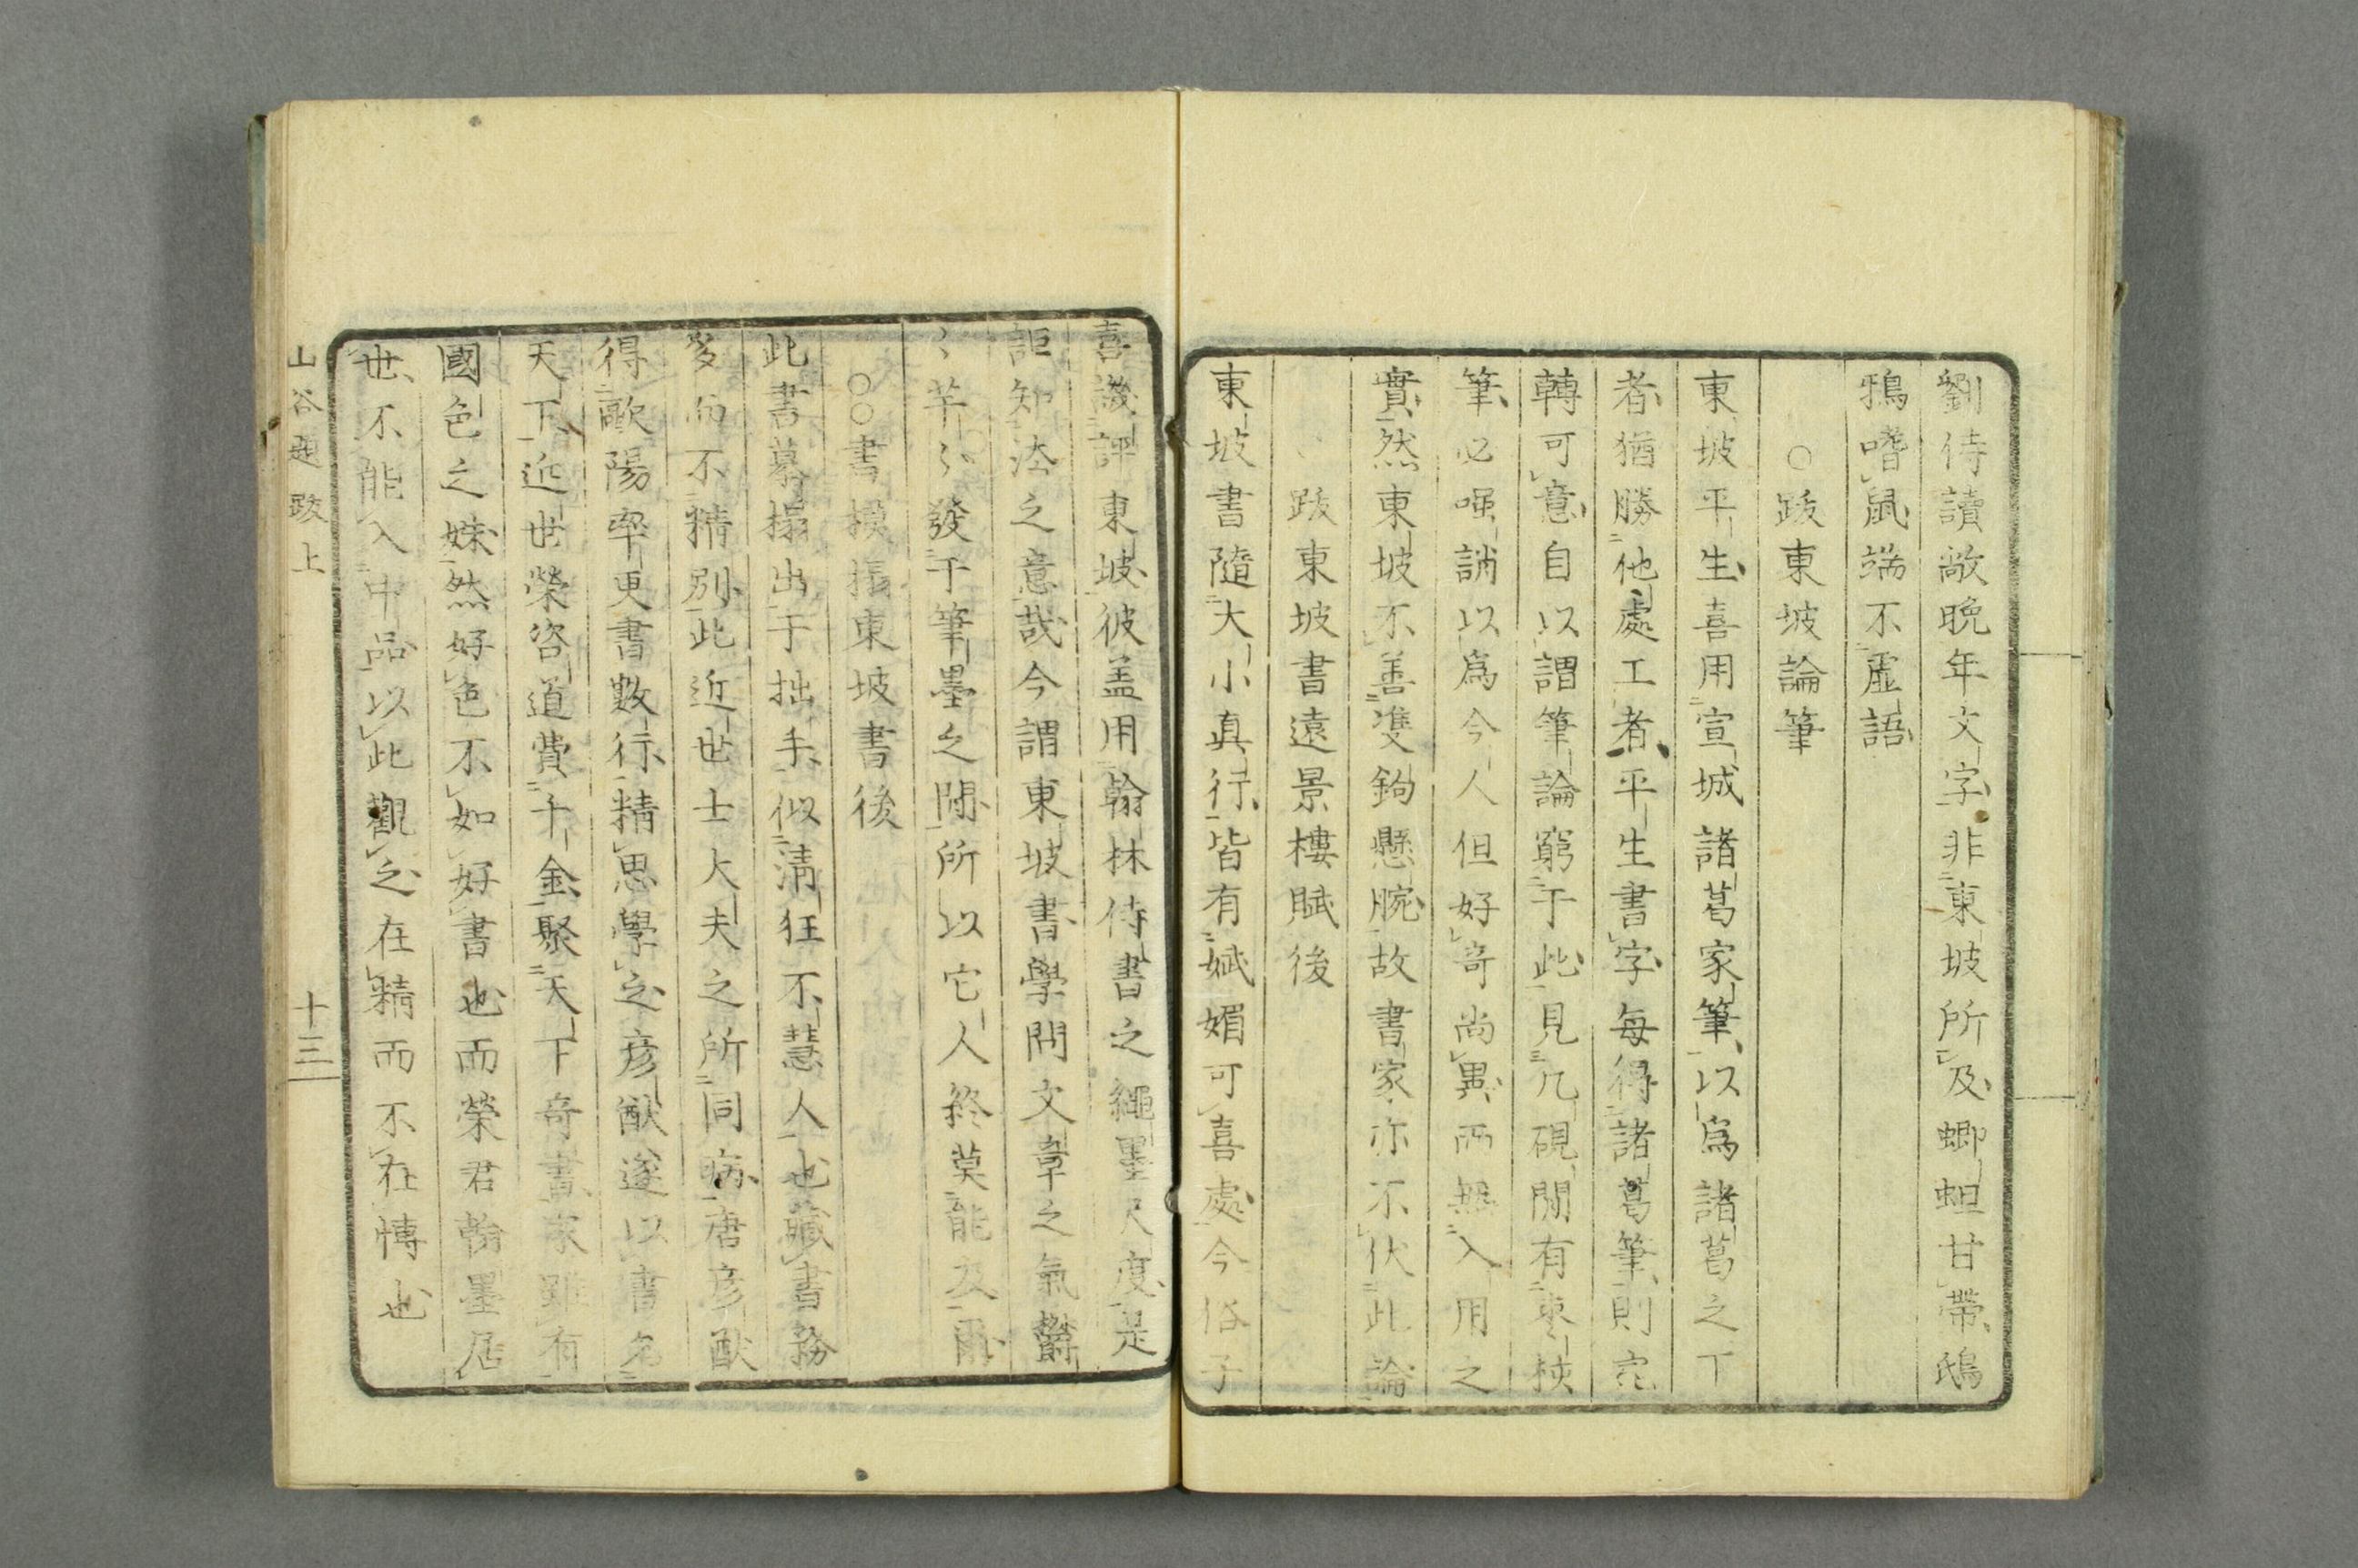 劉侍讀敞晩年文字非東坡所及蝍蛆甘帶鴟
鴉嗜鼠端不虛語
○跋東坡論筆
東坡平生喜用宣城諸葛家筆以爲諸葛之下
者猶勝他處工者平生書字每得諸葛筆則宛
轉可意自以謂筆論窮于此見几硯間有棗核
筆必嗤誚以爲今人但好奇尚異而無入用之
實然東坡不善雙鉤懸腕故書家亦不伏此論
跋東坡書遠景樓賦後
東坡書隨大小真行皆有娬媚可喜處今俗子
喜譏評東坡彼盖用翰林侍書之繩墨尺度是
詎知法之意哉今謂東坡書學問文章之氣鬱
〻芊〻發于筆墨之間所以它人終莫能及爾
○○書摸搨東坡書後
此書摹搨出于拙手似清狂不慧人也藏書務
多而不精別此近世士大夫之所同病唐彦猷
得歐陽率更書數行精思學之彦猷遂以書名
天下近世榮咨道費千金聚天下奇書家雖有
國色之姝然好色不如好書也而榮君翰墨居
世不能入中品以此觀之在精而不在愽也
山谷題跋上
十三